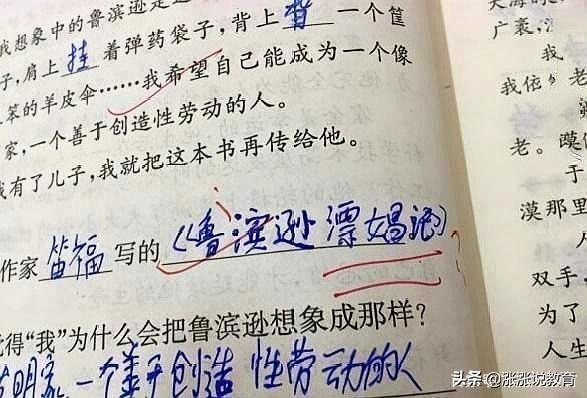 我想象中的鲁滨逊是
子,肩上挂着弹药袋子,背上背一个筐
笨的羊皮伞……我希望自己能成为一个像
家,一个善于创造性劳动的人。
我有了儿子,我就把这本书再传给他。
作家笛福写的《鲁滨逊漂娼记》
得“我”为什么会把鲁滨逊想象成那样?
发明家、一个善于创造性劳动的人
广袤,
我
我依
老
老。
于
漠那里
双手,
为了
人生
头条 @涨涨说教育